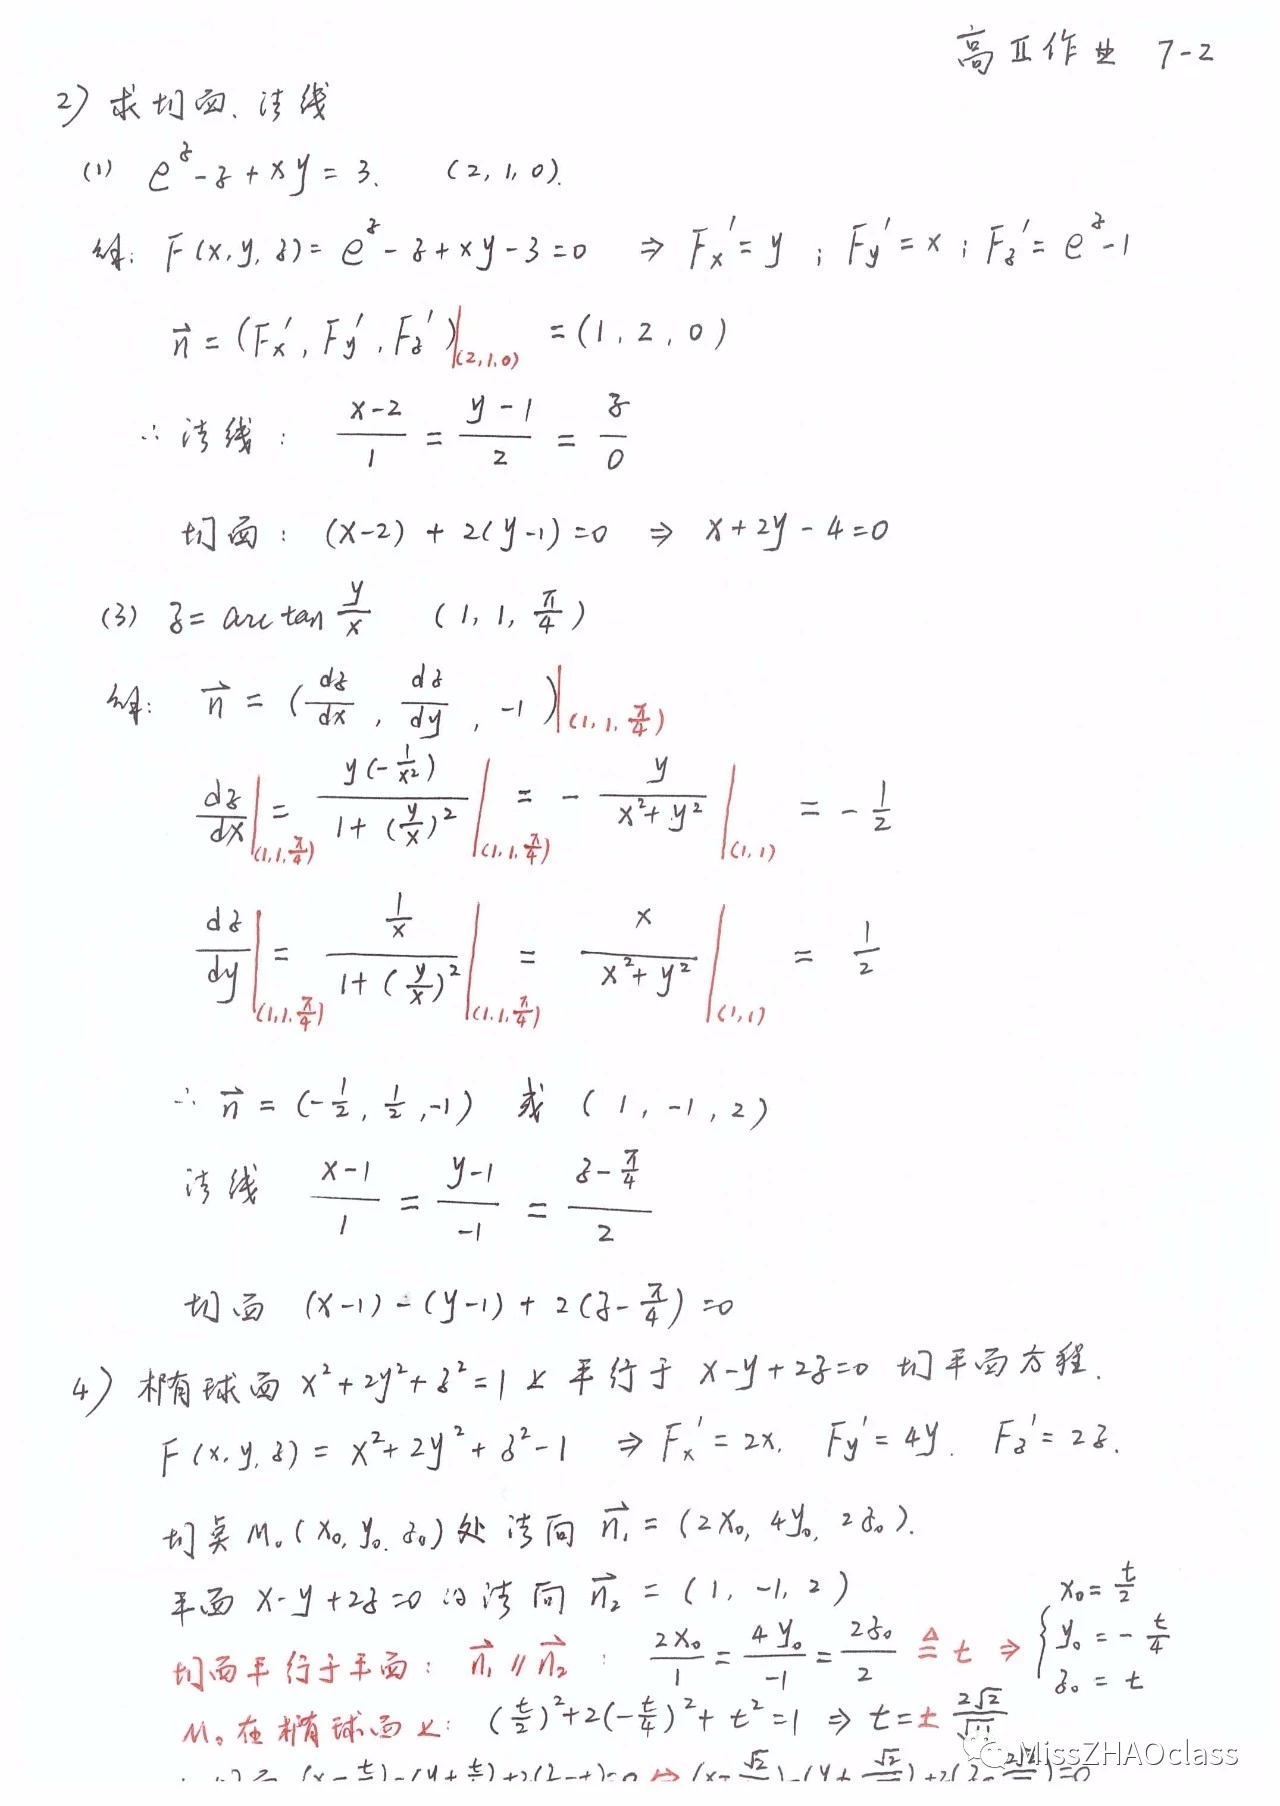 高Ⅱ作业 7-2
2) 求切面、法线
(1) e^z - z + xy = 3. (2, 1, 0).
解: F(x, y, z) = e^z - z + xy - 3 = 0 ⇒ Fx' = y ; Fy' = x ; Fz' = e^z - 1
n⃗ = (Fx', Fy', Fz')|(2,1,0) = (1, 2, 0)
∴ 法线: (x-2)/1 = (y-1)/2 = z/0
切面: (x-2) + 2(y-1) = 0 ⇒ x + 2y - 4 = 0
(3) z = arctan y/x (1, 1, π/4)
解: n⃗ = (dz/dx, dz/dy, -1)|(1,1,π/4)
dz/dx|(1,1,π/4) = y(-1/x²)/(1+(y/x)²)|(1,1,π/4) = - y/(x²+y²)|(1,1) = - 1/2
dz/dy|(1,1,π/4) = (1/x)/(1+(y/x)²)|(1,1,π/4) = x/(x²+y²)|(1,1) = 1/2
∴ n⃗ = (-1/2, 1/2, -1) 或 (1, -1, 2)
法线 (x-1)/1 = (y-1)/-1 = (z-π/4)/2
切面 (x-1) - (y-1) + 2(z-π/4) = 0
4) 椭球面 x²+2y²+z²=1 上平行于 x-y+2z=0 切平面方程.
F(x, y, z) = x²+2y²+z²-1 ⇒ Fx' = 2x. Fy' = 4y. Fz' = 2z.
切点 M₀(x₀, y₀, z₀) 处法向 n⃗₁ = (2x₀, 4y₀, 2z₀).
平面 x-y+2z=0 的法向 n⃗₂ = (1, -1, 2)
切面平行于平面: n⃗₁ ∥ n⃗₂ : 2x₀/1 = 4y₀/-1 = 2z₀/2 ≜ t ⇒ { x₀ = t/2 y₀ = - t/4 z₀ = t
M₀在椭球面上: (t/2)²+2(-t/4)²+t²=1 ⇒ t=± 2√2/√11
MissZHAOclass
(x-t/2)-(y+t/4)+2(z-t)=0